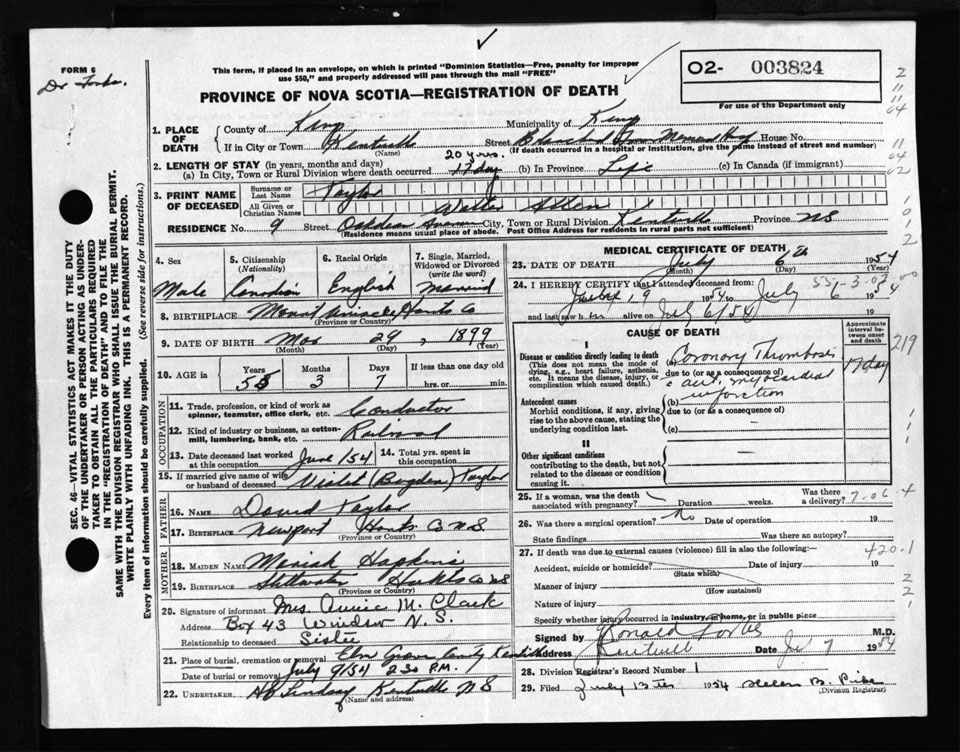 FORM 6
Dr Forbes.
This form, if placed in an envelope, on which is printed "Dominion Statistics—Free, penalty for improper
use $50," and properly addressed will pass through the mail "FREE"
O2- 003824
For use of the Department only
PROVINCE OF NOVA SCOTIA—REGISTRATION OF DEATH
SEC. 46—VITAL STATISTICS ACT MAKES IT THE DUTY
OF THE UNDERTAKER OR PERSON ACTING AS UNDER-
TAKER TO OBTAIN ALL THE PARTICULARS REQUIRED
IN THE "REGISTRATION OF DEATH" AND TO FILE THE
SAME WITH THE DIVISION REGISTRAR WHO SHALL ISSUE THE BURIAL PERMIT.
WRITE PLAINLY WITH UNFADING INK. THIS IS A PERMANENT RECORD.
Every item of information should be carefully supplied. (See reverse side for instructions.)
1. PLACE OF DEATH
County of Kings Municipality of Kings
If in City or Town Kentville Street Blanchard Fraser Memorial Hosp House No.
(Name) (If death occurred in a hospital or institution, give the name instead of street and number)
2. LENGTH OF STAY (in years, months and days)
20 yrs.
(a) In City, Town or Rural Division where death occurred 17 day (b) In Province Life (c) In Canada (if immigrant)
3. PRINT NAME OF DECEASED
Surname or Last Name Taylor
All Given or Christian Names Walter Allen
RESIDENCE No. 9 Street Oakdene Avenue City, Town or Rural Division Kentville Province NS
(Residence means usual place of abode. Post Office Address for residents in rural parts not sufficient)
4. Sex
Male
5. Citizenship (Nationality)
Canadian
6. Racial Origin
English
7. Single, Married, Widowed or Divorced (write the word)
Married
8. BIRTHPLACE Mount Uniacke Hants Co
(Province or Country)
9. DATE OF BIRTH Mar 29, 1899
(Month) (Day) (Year)
10. AGE in
Years Months Days If less than one day old
55 3 7 hrs. or min.
OCCUPATION
11. Trade, profession, or kind of work as spinner, teamster, office clerk, etc. Conductor
12. Kind of industry or business, as cotton-mill, lumbering, bank, etc. Railroad
13. Date deceased last worked at this occupation June 1 54
14. Total yrs. spent in this occupation
15. If married give name of wife or husband of deceased Violet (Bogden) Taylor
FATHER
16. NAME David Taylor
17. BIRTHPLACE Newport Hants Co N.S.
(Province or Country)
MOTHER
18. MAIDEN NAME Moriah Hopkins
19. BIRTHPLACE Stillwater Hants Co NS
(Province or Country)
20. Signature of informant Mrs. Annie M. Clark
Address Box 43 Windsor N.S.
Relationship to deceased Sister
21. Place of burial, cremation or removal Elm Grove Kentville
Date of burial or removal July 9/54 2.30 P.M.
22. UNDERTAKER H B Lindsay Kentville NS
(Name and address)
MEDICAL CERTIFICATE OF DEATH
23. DATE OF DEATH July 6th 1954
(Month) (Day) (Year)
24. I HEREBY CERTIFY that I attended deceased from:
June 19 1954 to July 6 1954
and last saw him alive on July 6/54
55-3-07
CAUSE OF DEATH
Approximate interval between onset and death
I
Disease or condition directly leading to death
(This does not mean the mode of dying, e.g., heart failure, asthenia, etc. It means the disease, injury, or complication which caused death.)
(a) Coronary Thrombosis 17 day
due to (or as a consequence of)
c aut. myocardial
Antecedent causes
Morbid conditions, if any, giving rise to the above cause, stating the underlying condition last.
(b) infarction
due to (or as a consequence of)
(c)
II
Other significant conditions
contributing to the death, but not related to the disease or condition causing it.
25. If a woman, was the death associated with pregnancy? Duration weeks. Was there a delivery?
7.06.4
26. Was there a surgical operation? No Date of operation 19
State findings Was there an autopsy?
27. If death was due to external causes (violence) fill in also the following:—
420.1
Accident, suicide or homicide? Date of injury 19
(State which)
Manner of injury
(How sustained)
Nature of injury
Specify whether injury occurred in industry, in home, or in public place
Signed by Ronald Forbes M.D.
Address Kentville Date Jul 7 1954
28. Division Registrar's Record Number 1
29. Filed July 13th 1954 Helen B. Pike
(Division Registrar)
219